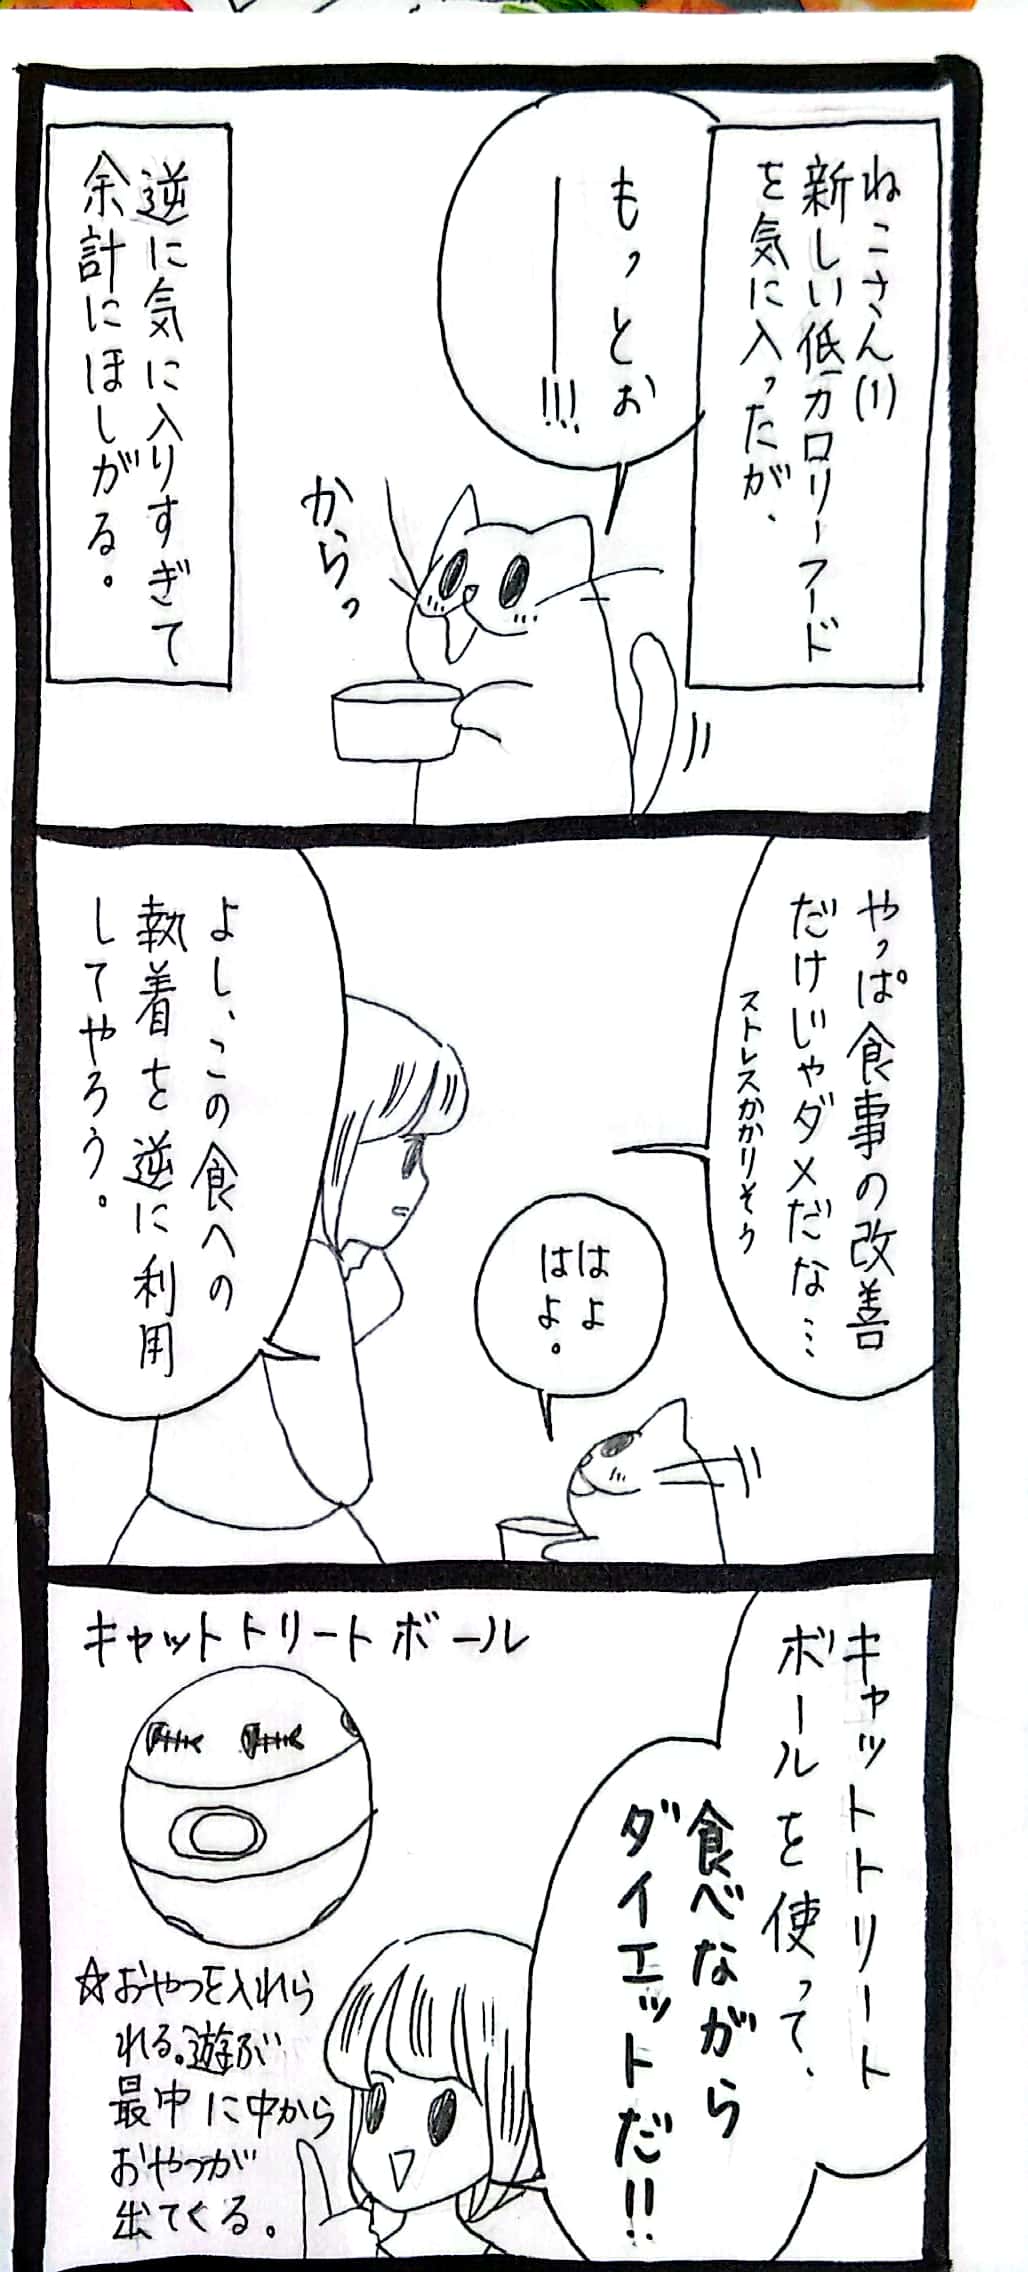 ねこさん(1)
新しい低カロリーフード
を気に入ったが、
もっとぉ
――!!!
からっ
逆に気に入りすぎて
余計にほしがる。
やっぱ食事の改善
だけじゃダメだな…
ストレスかかりそう
はよ
はよ。
よし、この食への
執着を逆に利用
してやろう。
キャットトリート
ボールを使って、
食べながら
ダイエットだ!!
キャットトリートボール
☆おやつを入れら
れる。遊ぶ
最中に中から
おやつが
出てくる。